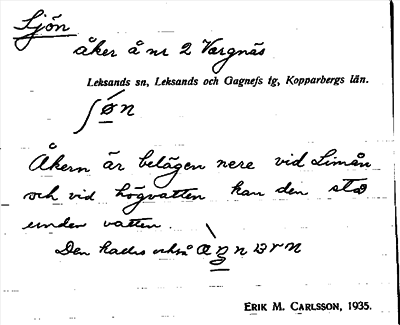 Sjön
åker å nr 2 Vargnäs
Leksands sn, Leksands och Gagnefs tg, Kopparbergs län.
ʃøn
Åkern är belägen nere vid Limån
och vid högvatten kan den stå
under vatten.
Den kallas också
ERIK M. CARLSSON, 1935.